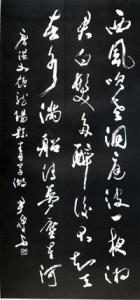 西風吹老洞庭波一夜湘
君白髮多醉後不知天
在水滿船清夢壓星河
唐温如題龍陽縣青草湖